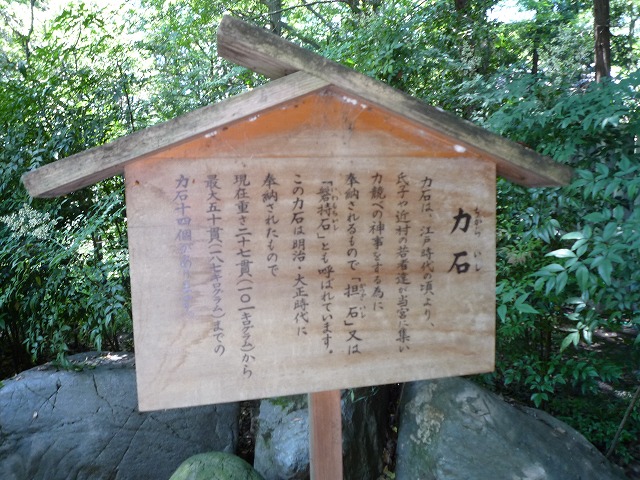 力石
ちから いし
力石は、江戸時代の頃より、
氏子や近村の若者達が当宮に集い
力競べの神事をする為に
奉納されるもので「担石」又は
「磐持石」とも呼ばれています。
この力石は明治・大正時代に
奉納されたもので
現在重さ二十七貫(一〇一キログラム)から
最大五十貫(一八七キログラム)までの
力石十四個があります。